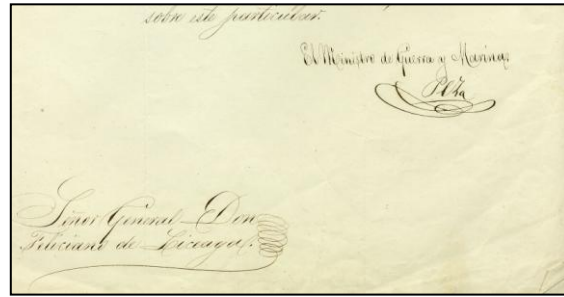 sobre este particular.
El Ministro de Guerra y Marina
Señor General Don
Feliciano de Liceaga.